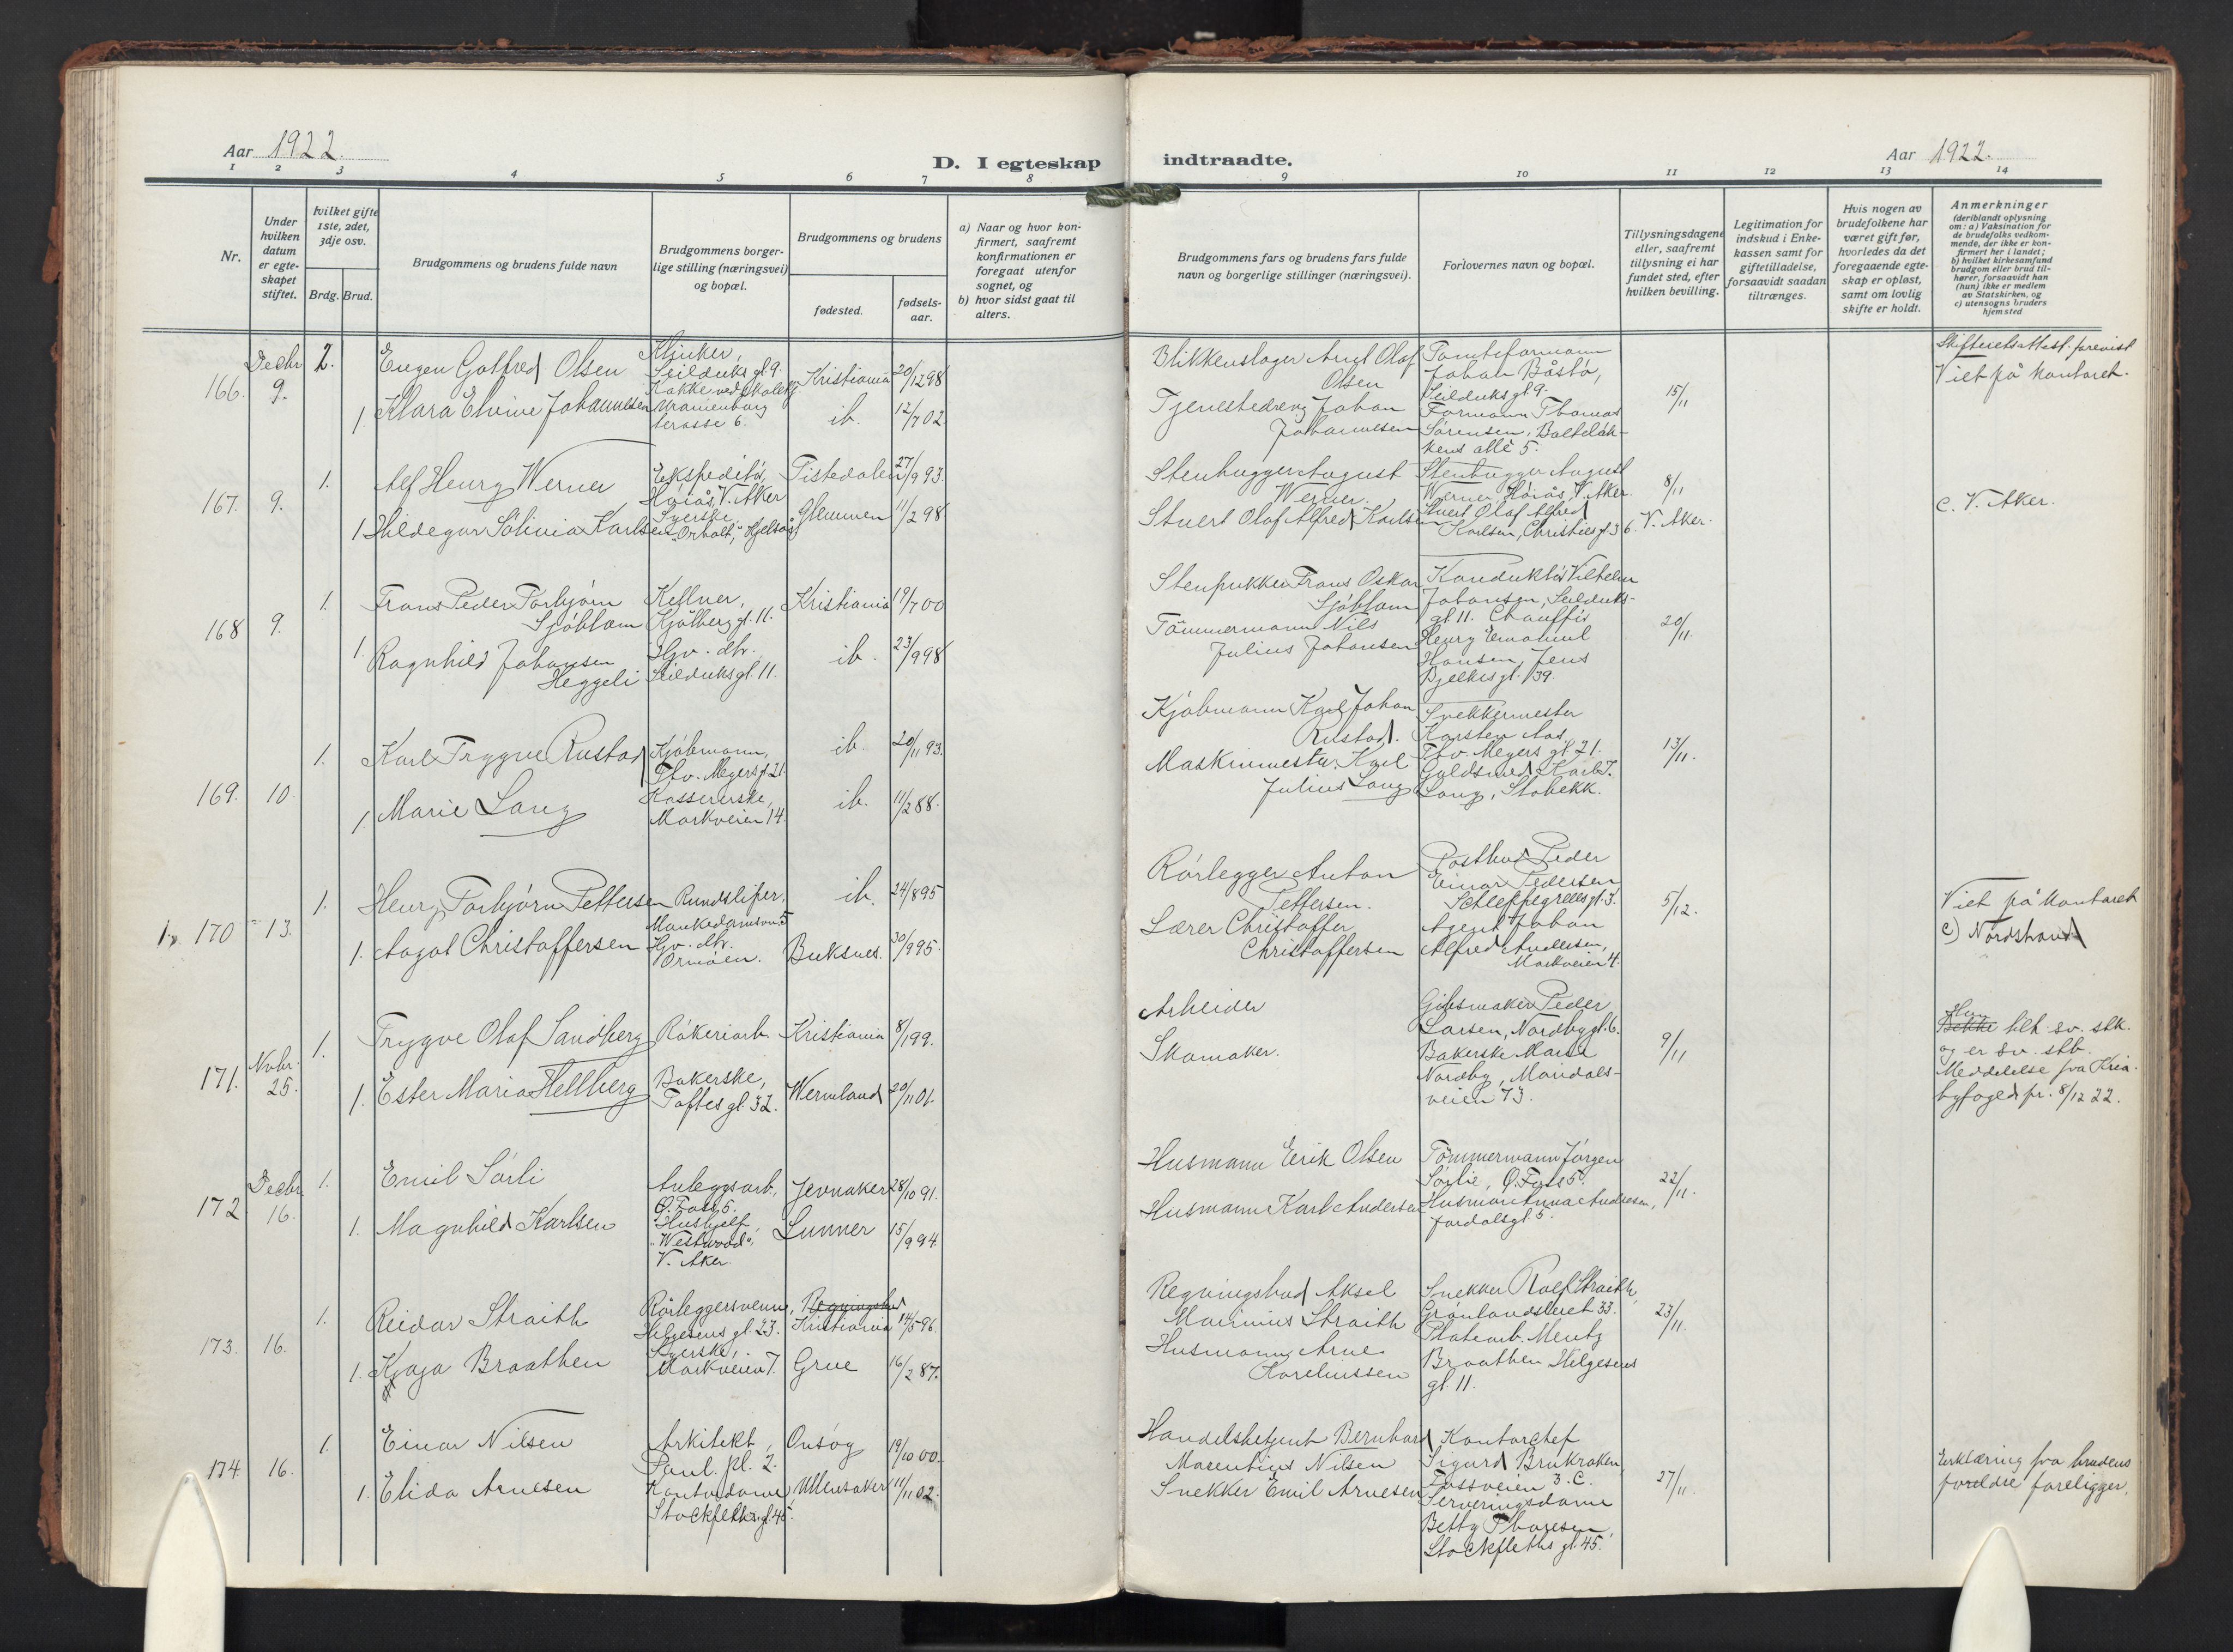 Aar 1922.
D. I egteskap
indtraadte.
Aar 1922.
1 2 3 4 5 6 7 8 9 10 11 12 13 14
Nr.
Under hvilken datum er egteskapet stiftet.
hvilket gifte 1ste, 2det, 3dje osv.
Brdg. Brud.
Brudgommens og brudens fulde navn
Brudgommens borgerlige stilling (næringsvei) og bopæl.
Brudgommens og brudens
fødested.
fødselsaar.
a) Naar og hvor konfirmert, saafremt konfirmationen er foregaat utenfor sognet, og
b) hvor sidst gaat til alters.
Brudgommens fars og brudens fars fulde navn og borgerlige stillinger (næringsvei).
Forlovernes navn og bopæl.
Tillysningsdagene eller, saafremt tillysning ei har fundet sted, efter hvilken bevilling.
Legitimation for indskud i Enkekassen samt for giftetilladelse, forsaavidt saadan tiltrænges.
Hvis nogen av brudefolkene har været gift før, hvorledes da det foregaaende egteskap er opløst, samt om lovlig skifte er holdt.
Anmerkninger
(deriblandt oplysning om: a) Vaksination for de brudefolks vedkommende, der ikke er konfirmert her i landet; b) hvilket kirkesamfund brudgom eller brud tilhører, forsaavidt han (hun) ikke er medlem av Statskirken, og c) utensogns bruders hjemsted
166. Decbr 9. 2. Eugen Gotfred Olsen
Klinker, Seilduks gt. 9.
Kristiania 20/12 98
Blikkenslager Arnt Olaf Olsen
Tomteformann Johan Båstø, Seilduks gt. 9.
15/11
Skifteretsattest forevist
Viet på kontoret.
1. Klara Elvine Johannesen
Kokke ved skolekj.
Uranienborg terasse 6.
ib. 12/7 02
Tjenestedreng Johan Johannesen
Formann Thomas Sørensen, Balteløkkens allé 5.
167. 9. 1. Alf Henry Werner
Ekspeditør, Høiås, V. Aker
Tistedalen 27/9 93.
Stenhugger August Werner.
Stenhugger August Werner, Høiås, V. Aker.
8/11
V. Aker.
c. V. Aker.
1 Hildegar Solivia Karlsen
Syerske, "Orholt," Hjeltås
Glemmen 11/2 98
Stuert Olaf Alfred Karlsen
Stuert Olaf Alfred Karlsen, Christies gt 36.
168 9. 1. Frans Peder Torbjørn Sjöblom
Kellner, Kjølberg gt. 11.
Kristiania 19/7 00
Stenpukker Frans Oskar Sjöblom
Konduktør Vilhelm Johansen, Seilduksgt 11.
20/11.
1. Ragnhild Johansen Heggeli
Hjv. dtr. Seilduksgt. 11.
ib. 23/9 98
Tömmermann Nils Julius Johansen
Chauffør Henry Emanuel Hansen, Jens Bjelkes gt. 39.
169. 10. 1. Karl Trygve Rustad
Kjöbmann, Thv. Meyers gt 21.
ib. 20/11 93.
Kjöbmann Karl Johan Rustad.
Snekkermester Karsten Aas. Thv. Meyers gt 21.
13/11.
1. Marie Lang
Kassererske, Markveien 14.
ib. 11/2 88.
Maskinmester Karl Julius Lang
Guldsmed Karl J. Lang, Stabekk.
170 13. 1. Henry Torbjørn Pettersen
Rundsliper, Munkedamsvn. 5
ib. 24/8 95
Rørlegger Anton Pettersen.
Postbud Peder Einar Pedersen Schleppegrells gt. 3.
5/12.
Viet på kontoret
c) Nordstrand
1. Aagot Christoffersen
Hjv. dtr. Ormøen.
Buksnes. 30/9 95.
Lærer Christoffer Christoffersen
Agent Johan Alfred Andersen, Markveien 4.
171. Nvbr. 25. 1. Trygve Olaf Sandberg
Røkeriarb.
Kristiania 8/1 99.
Arbeider
Gibsmaker Peder Larsen, Nordbygt. 6.
9/11
Hun blt. sv. stk. og er sv. stb.
Meddelelse fra Kria. byfoged pr. 8/12 22.
1. Ester Maria Hellberg
Bakerske, Toftes gt. 32.
Wermland 20/11 01.
Skomaker.
Bakerske Marie Nordby, Maridalsveien 73.
172 Decbr 16. 1. Emil Sørli
Anleggsarb, Ø. Foss 5.
Jevnaker 28/10 91.
Husmann Erik Olsen
Tömmermann Jörgen Sørlie, Ø. Foss 5.
22/11.
1. Magnhild Karlsen
Hushjelp, "Westwood", V. Aker.
Lunner 15/9 94
Husmann Karl Andersen
Husmor Anna Andresen, Jordalsgt. 5.
173. 16. 1. Reidar Straith
Rørleggersvenn, Helgesens gt. 23.
Regningsbud
Kristiania 14/5 96.
Regningsbud Aksel Marinius Straith
Snekker Rolf Straith, Grønlandsleret 33.
23/11.
1. Kjaja Braathen
Syerske, Markveien 7.
Grue 16/2 87.
Husmann Arne Kareliussen
Platearb. Mentz Braathen Helgesens gt. 11.
174 16. 1. Einar Nilsen
Arkitekt, Paul. pl. 2.
Onsøy 19/10 00.
Handelsbetjent Bernhard Marentius Nilsen
Kontorchef Sigurd Brukroken, Fossveien 3. C.
27/11.
Erklæring fra brudens foreldre foreligger.
1. Elida Arnesen
Kontordame Stockfleths gt. 45.
Ullensaker 11/11 02.
Snekker Emil Arnesen
Serveringsdame Betty Thoresen, Stockfleths gt. 45.